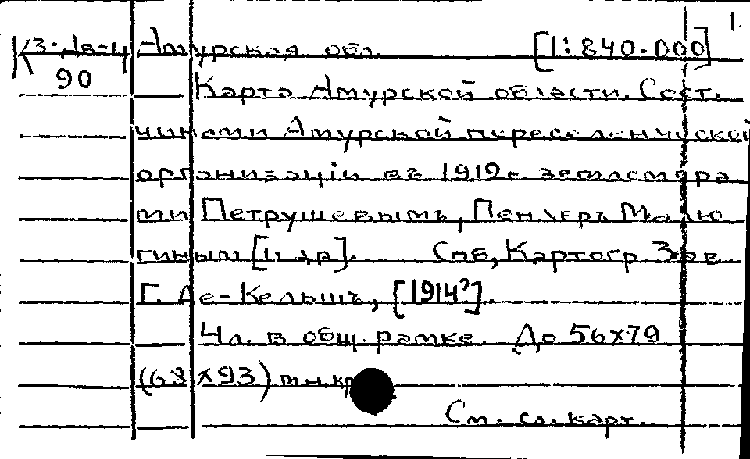 1.
Амурская обл. [1:840.000]
90
Карта Амурской области. Сост.
чинами Амурской переселенческой
организацiи въ 1912 г. землемѣра
ми Петрушевымъ,
гиным [и др]. Спб, Картогр. Зав.
Г. Де-Кельшъ, [1914?].
4 л. в общ. рамке. До 56x79
(63x93)
См. сл. карт.